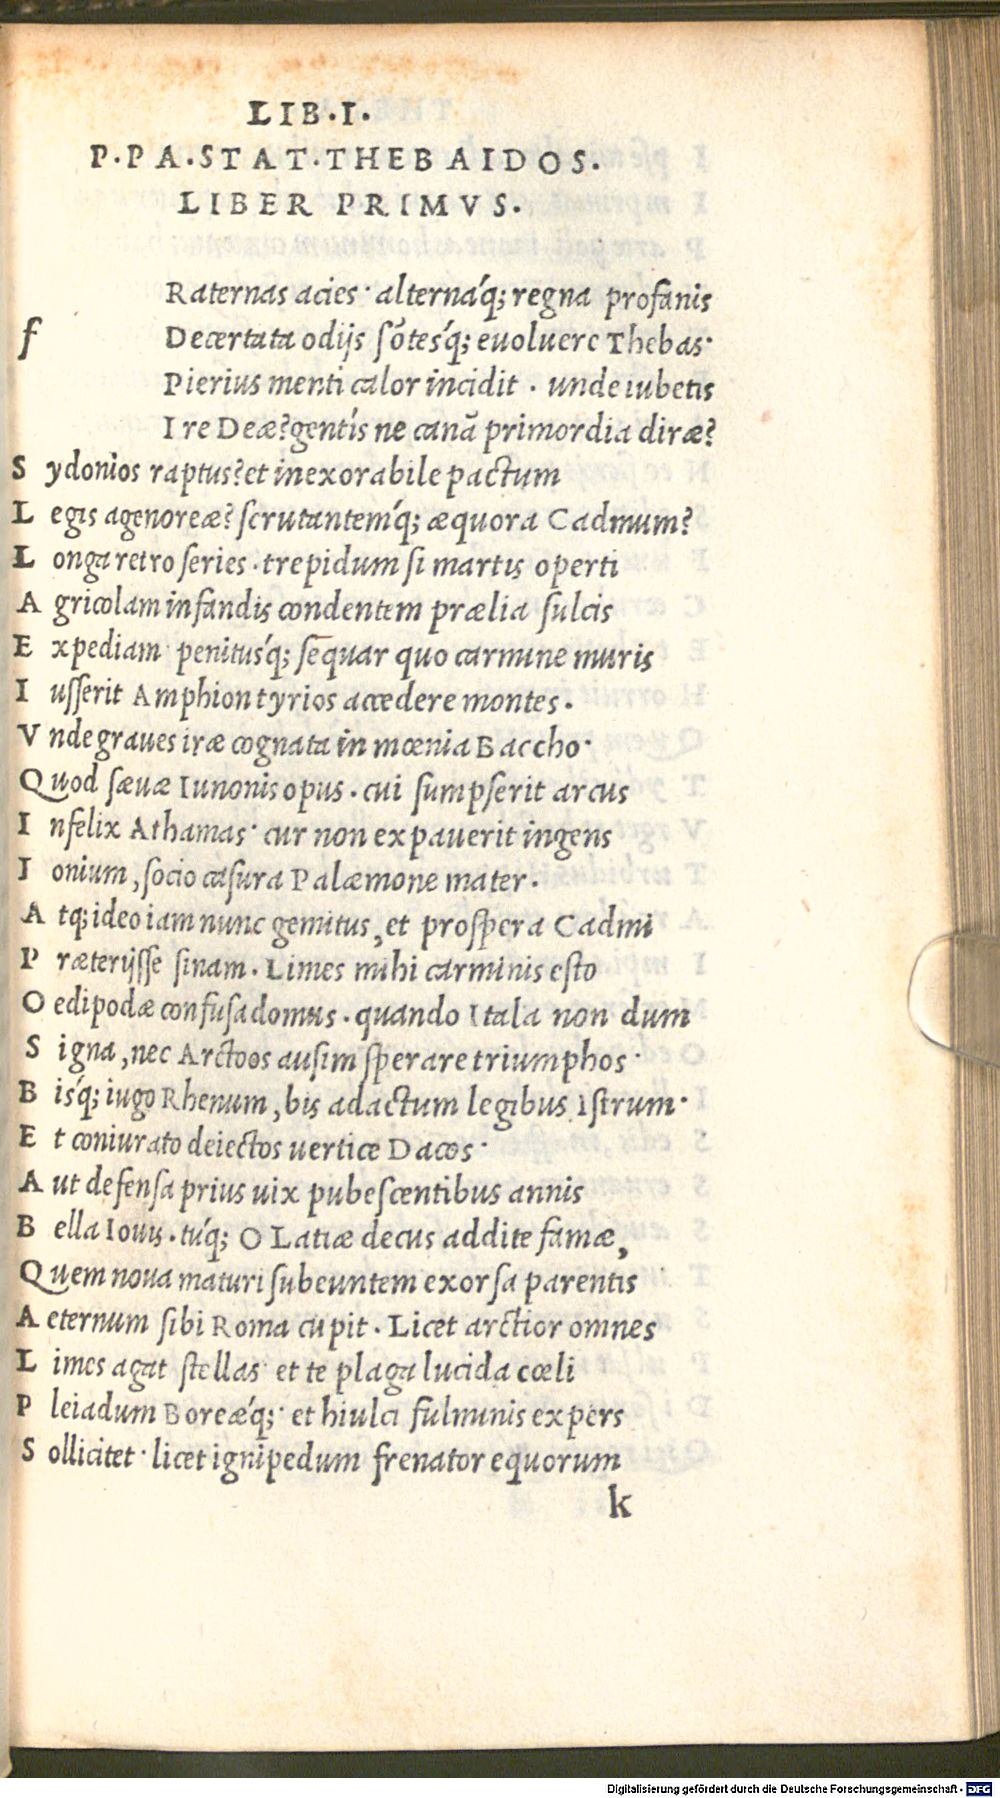 LIB.I.
P.PA.STAT.THEBAIDOS.
LIBER PRIMVS.
Raternas acies· alternáq; regna profanis
f
Decertata odijs sōtésq; euoluere Thebas·
Pierius menti calor incidit . unde iubetis
Ire Deæ? gentís ne canā primordia diræ?
Sydonios raptus? et inexorabile pactum
Legis agenoreæ? scrutantemq́; æquora Cadmum?
Longa retro series . trepidum si martis operti
Agricolam infandis condentem prælia sulcis
Expediam penitusq́; sequar quo carmine muris
Iusserit Amphion tyrios accedere montes.
Vnde graues iræ cognata in mœnia Baccho·
Quod sæuæ Iunonis opus . cui sumpserit arcus
Infelix Athamas· cur non expauerit ingens
Ionium, socio casura Palæmone mater.
Atq; ideo iam nunc gemitus, et prospera Cadmi
Præterijsse sinam. Limes mihi carminis esto
Oedipodæ confusa domus . quando Itala non dum
Signa, nec Arctoos ausim sperare triumphos·
Bisq́; iugo Rhenum, bis adactum legibus Istrum·
Et coniurato deiectos uertice Dacos·
Aut defensa prius uix pubescentibus annis
Bella Iouis . túq; O Latiæ decus addite famæ,
Quem noua maturi subeuntem exorsa parentis
Aeternum sibi Roma cupit . Licet arctior omnes
Limes agat stellas· et te plaga lucida cœli
Pleiadum Boreæq́;· et hiulci fulminis expers
Sollicitet· licet ignipedum frenator equorum
k
Digitalisierung gefördert durch die Deutsche Forschungsgemeinschaft - DFG